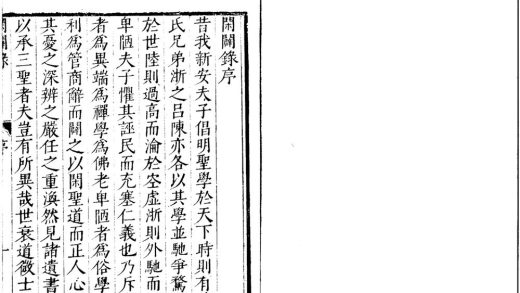 閑闢錄序
昔我新安夫子倡明聖學於天下時則有
氏兄弟浙之呂陳亦各以其學並馳爭鶩
於世陸則過高而淪於空虛浙則外馳而
卑陋夫子懼其誣民而充塞仁義也乃斥
者為異端為禪學為佛老卑陋者為俗學
利為管商辭而闢之以閑聖道而正人心
其憂之深辨之嚴任之重渙然見諸遺書
以承三聖者夫豈有所異哉世衰道微士
閑闢錄
序
一